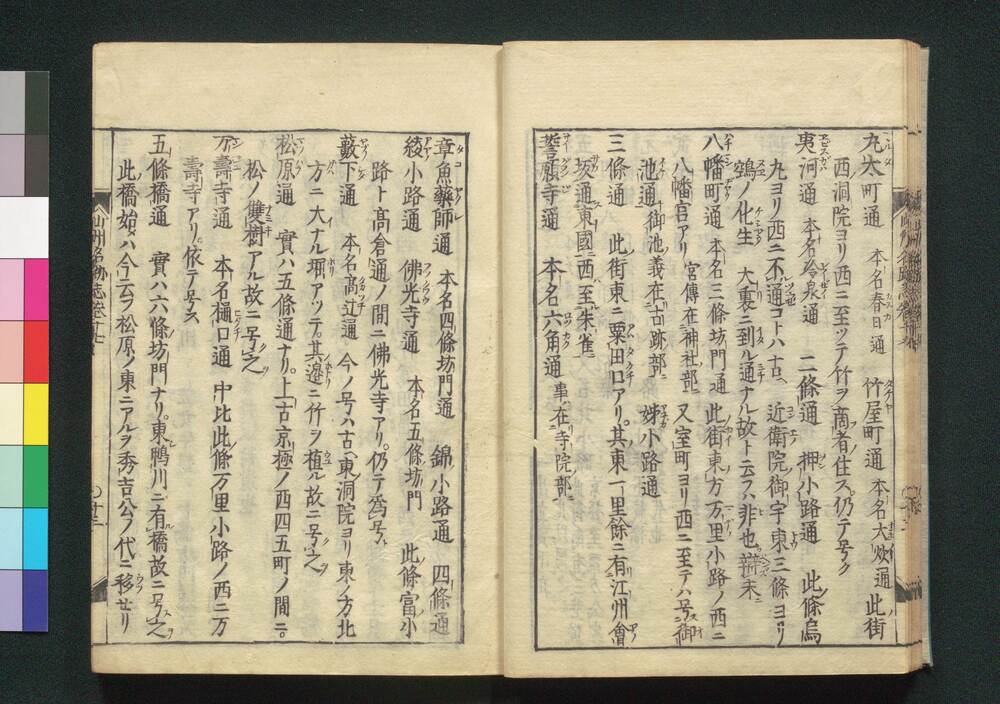 丸太町通　本名春日通　竹屋町通　本名大炊通　此街
西洞院ヨリ西ニ至ッテ竹ヲ商者住ス仍テ号ク
夷河通　本名冷泉通　二條通　押小路通　此條烏
丸ヨリ西ニ不通コトハ古ヘ近衛院御宇東三條ヨリ
鵼ノ化生　大裏ニ到ル通ナル故ト云フハ非也
八幡町通　本名三條坊門通　此街東方万里小路ノ西ニ
八幡宮アリ　宮傳在神社部ニ　又室町ヨリ西ニ至テハ号御
池通　御池義在古跡部ニ　姉小路通
三條通　此街東ニ粟田口アリ其東一里餘ニ有江州會
坂通東國西至朱雀
誓願寺通　本名六角通　事在寺院部ニ
章魚藥師通　本名四條坊門通　錦小路通　四條通
綾小路通　佛光寺通　本名五條坊門　此條富小
路ト髙倉通ノ間ニ佛光寺アリ仍テ為号
藪下通　本名髙辻通　今ノ号ハ古ヘ東洞院ヨリ東ノ方北
方ニ大イナル堀アッテ其邉ニ竹ヲ植ル故ニ号之
松原通　實ハ五條通ナリ上古京極ノ西四五町ノ間ニ
松ノ雙樹アル故ニ号之
万壽寺通　本名樋口通　中比此條万里小路ノ西ニ万
壽寺アリ依テ号ス
五條橋通　實ハ六條坊門ナリ東鴨川ニ有橋故ニ号之
此橋始ハ今云フ松原ノ東ニアルヲ秀吉公ノ代ニ移セリ
山州名跡志卷十七